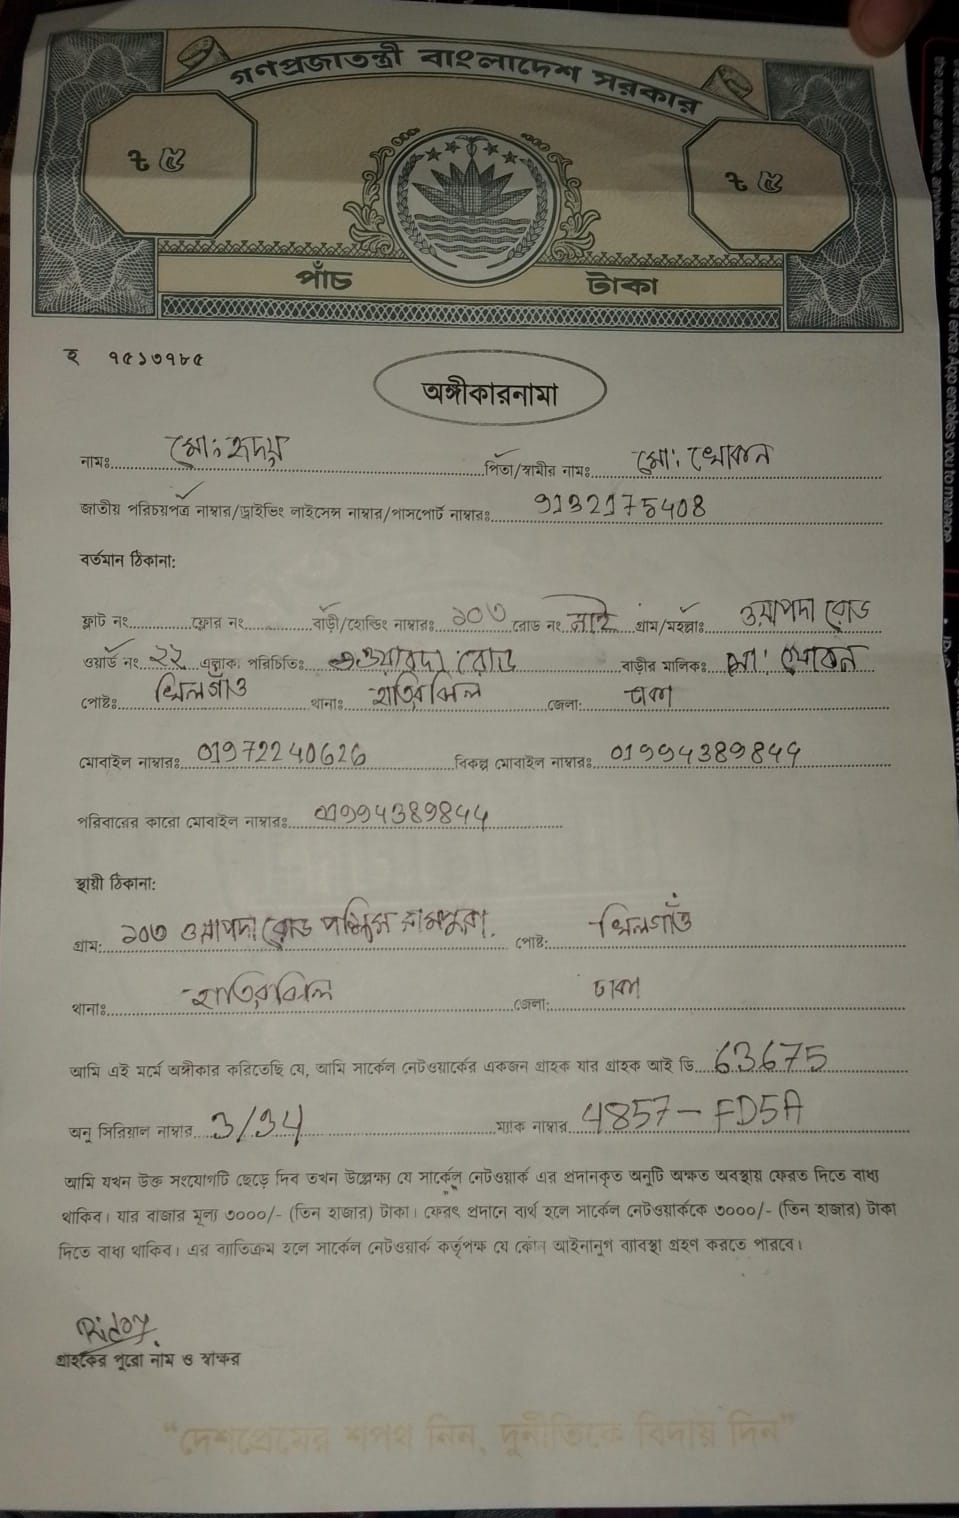 গণপ্রজাতন্ত্রী বাংলাদেশ সরকার
৳ ৫ ৳ ৫
পাঁচ টাকা
হ ৭৫১৩৭৮৫
অঙ্গীকারনামা
নামঃ মো: হৃদয় পিতা/স্বামীর নামঃ মো: খোকন
জাতীয় পরিচয়পত্র নাম্বার/ড্রাইভিং লাইসেন্স নাম্বার/পাসপোর্ট নাম্বারঃ 9132175408
বর্তমান ঠিকানা:
ফ্লাট নং ফ্লোর নং বাড়ী/হোল্ডিং নাম্বারঃ ১০৩ রোড নং নাই গ্রাম/মহল্লাঃ ওয়াপদা রোড
ওয়ার্ড নং ২২ এলাকা পরিচিতিঃ ওয়াবদা রোড বাড়ীর মালিকঃ মো: খোকন
পোষ্টঃ খিলগাঁও থানাঃ হাতিরঝিল জেলা: ঢাকা
মোবাইল নাম্বারঃ 01972240626 বিকল্প মোবাইল নাম্বারঃ 01994389844
পরিবারের কারো মোবাইল নাম্বারঃ 01994389844
স্থায়ী ঠিকানা:
গ্রাম: ১০৩ ওয়াপদা রোড পশ্চিম রামপুরা. পোষ্ট: খিলগাঁও
থানাঃ হাতিরঝিল জেলা: ঢাকা
আমি এই মর্মে অঙ্গীকার করিতেছি যে, আমি সার্কেল নেটওয়ার্কের একজন গ্রাহক যার গ্রাহক আই ডি 63675
অনু সিরিয়াল নাম্বার 3/34 ম্যাক নাম্বার 4857-FD5A
আমি যখন উক্ত সংযোগটি ছেড়ে দিব তখন উল্লেক্ষ্য যে সার্কেল নেটওয়ার্ক এর প্রদানকৃত অনুটি অক্ষত অবস্থায় ফেরত দিতে বাধ্য
থাকিব। যার বাজার মূল্য ৩০০০/- (তিন হাজার) টাকা। ফেরৎ প্রদানে ব্যর্থ হলে সার্কেল নেটওয়ার্ককে ৩০০০/- (তিন হাজার) টাকা
দিতে বাধ্য থাকিব। এর ব্যাতিক্রম হলে সার্কেল নেটওয়ার্ক কর্তৃপক্ষ যে কোন আইনানুগ ব্যাবস্থা গ্রহণ করতে পারবে।
Ridoy
গ্রাহকের পুরো নাম ও স্বাক্ষর
"দেশপ্রেমের শপথ নিন, দুর্নীতিকে বিদায় দিন"